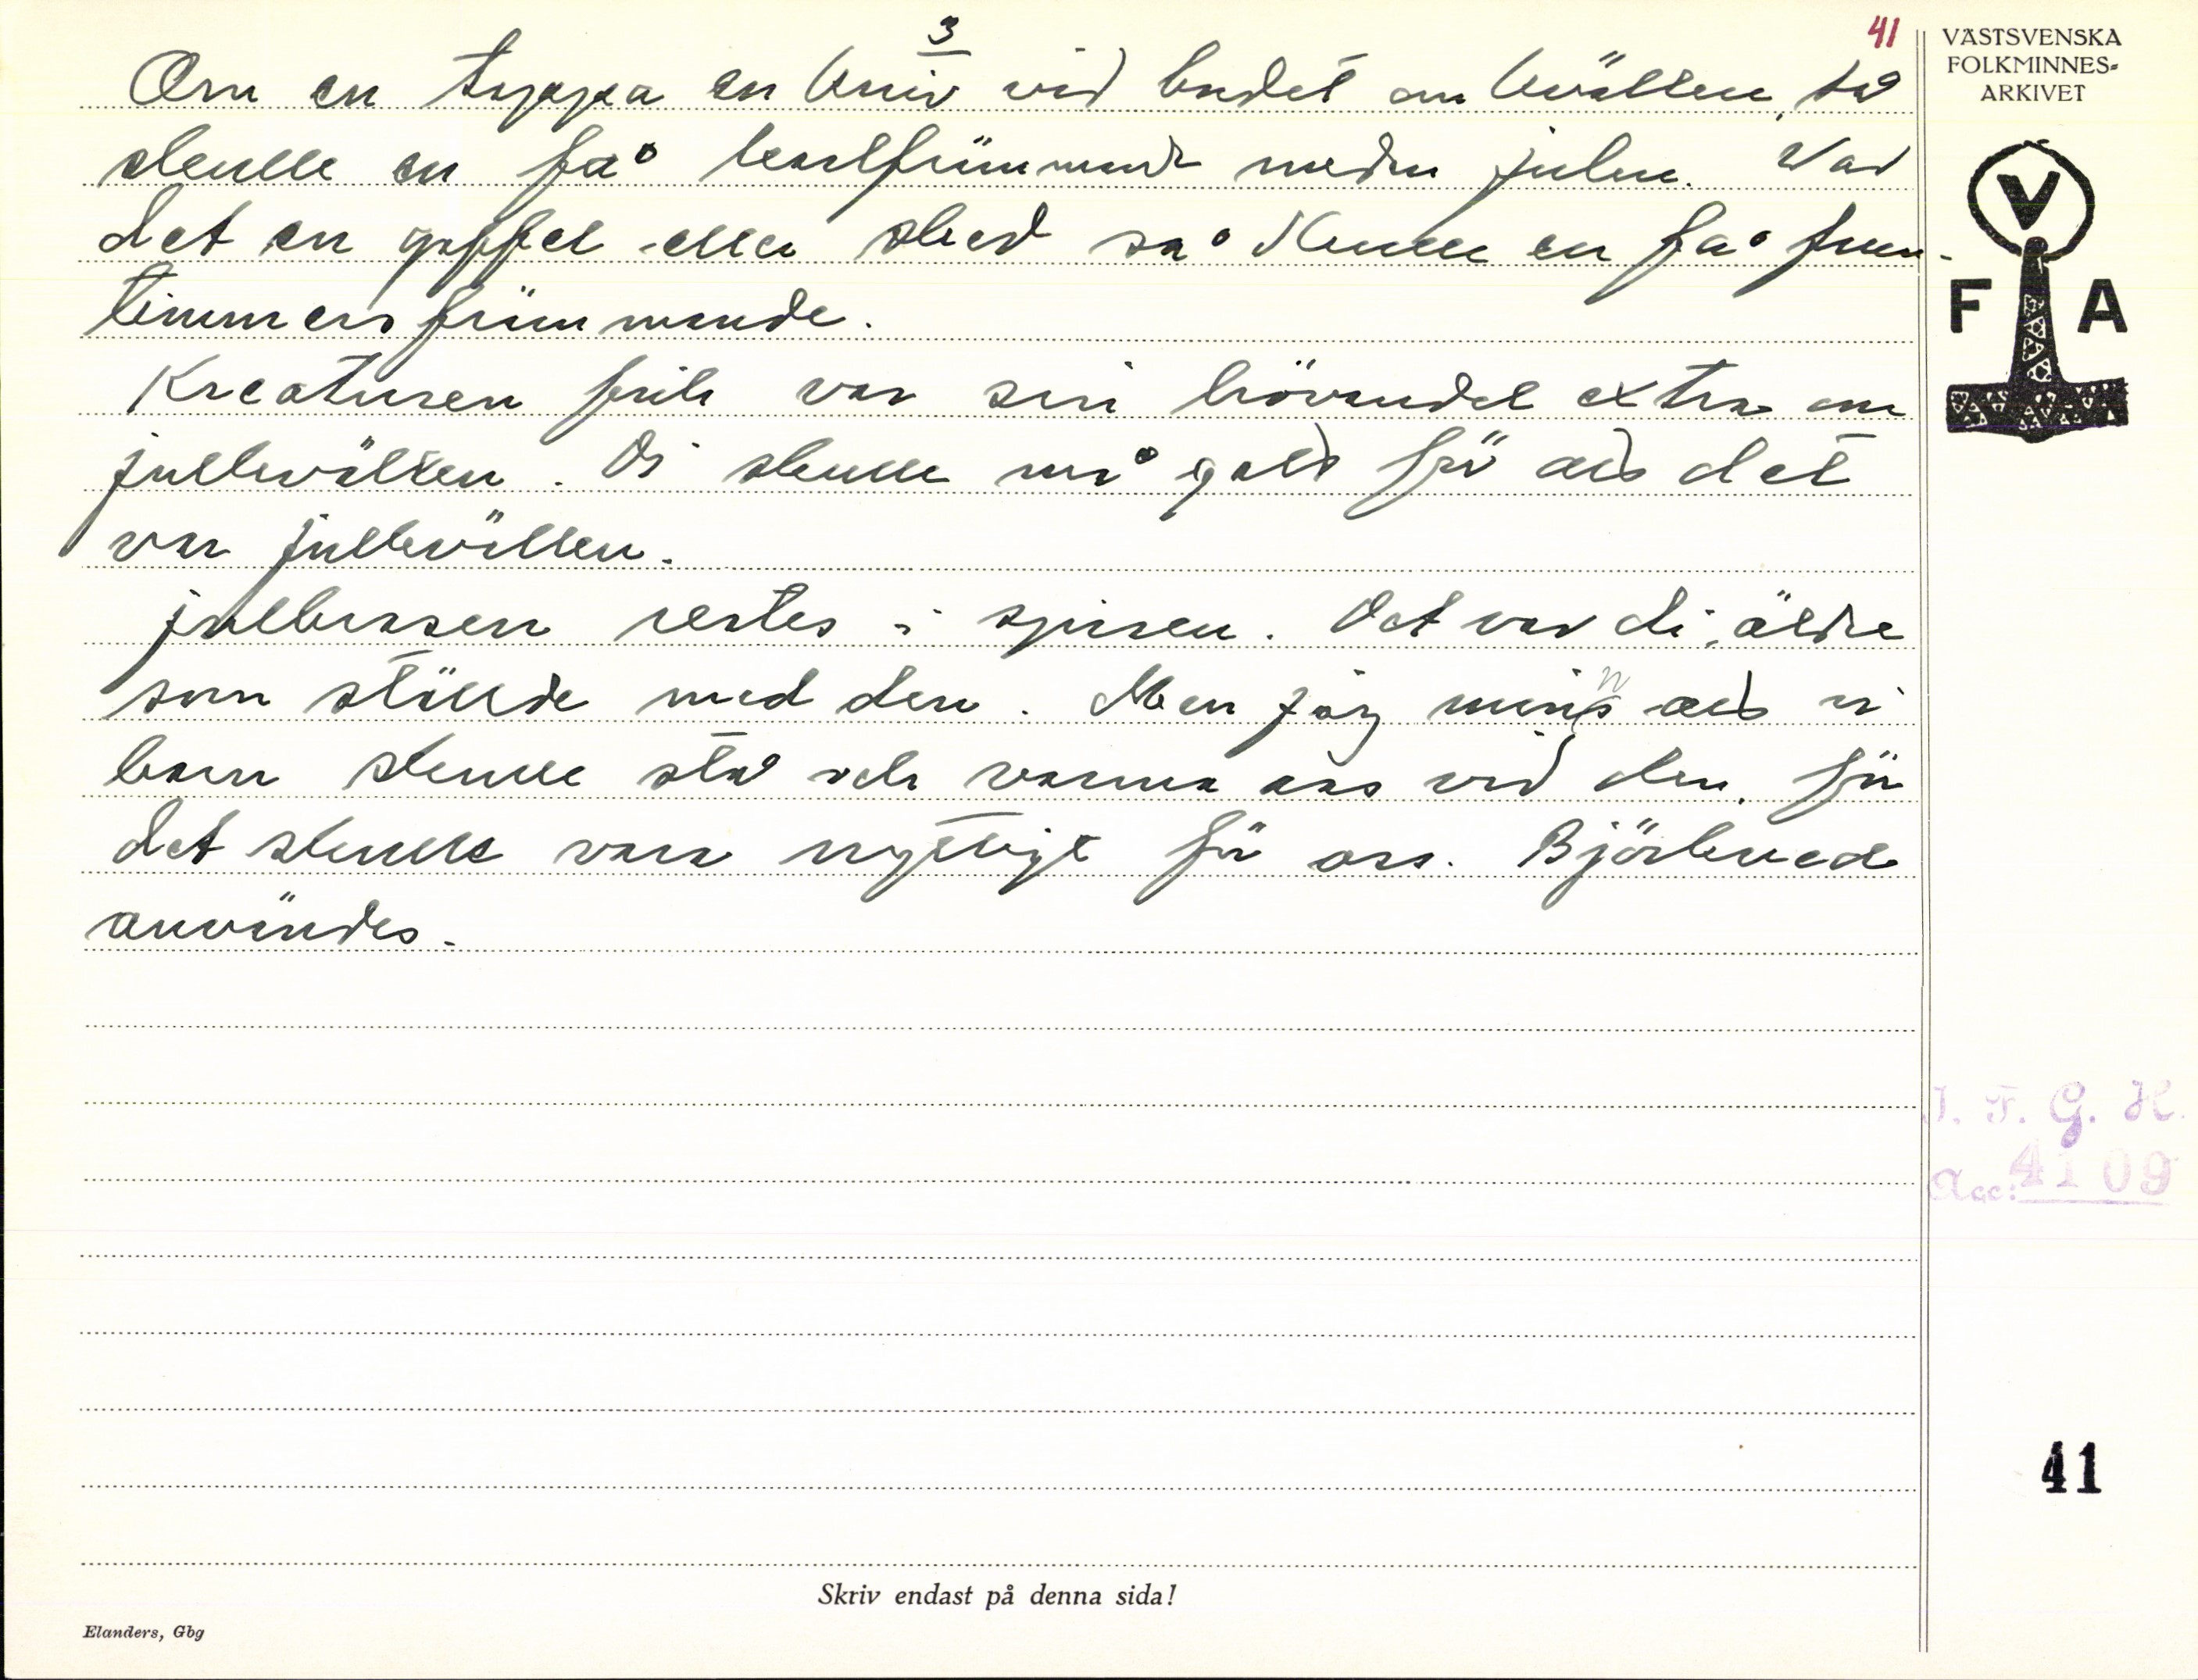 3
41
Om en tappa en kniv vid bodet om kvällen, så
skulle en få karlfrämmande meden julen. Var
det en gaffel eller sked så skulle en få frun-
timmersfrämmande.
Kreaturen fich var sin hövandel extra om
julkvällen. Di skulle må gott för att det
var julkvällen.
julbrasen restes i spisen. Det var di, äldre
som ställde med den. Men jag minns att vi
barn skulle stå och varma oss vid den, för
det skulle vara nyttigt för oss. Björkved
användes.
VÄSTSVENSKA
FOLKMINNES-
ARKIVET
V
F A
I. F. G. H.
Acc: 4109
41
Skriv endast på denna sida!
Elanders, Gbg